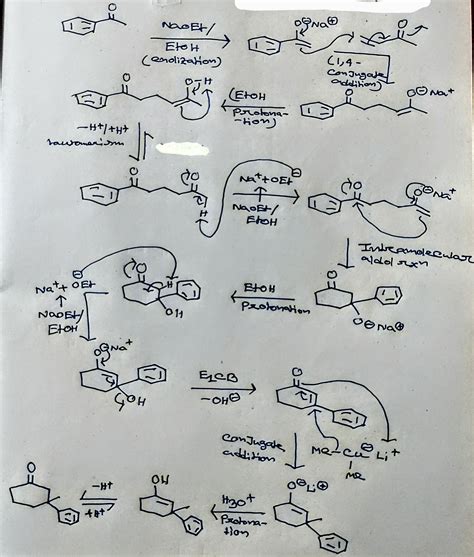 O
O
NaOEt/
EtOH
(enolization)
O⊖Na⊕
O
(1,4-
conjugate
addition)
O
O-H
(EtOH
Protona-
-tion)
O
O⊖Na+
-H+/+H+
tautomerism
O
O
H
Na++OEt⊖
NaOEt/
EtOH
O
O⊖Na+
Intramolecular
aldol rxn
Na++⊖OEt
NaOEt/
EtOH
O
H
OH
EtOH
Protonation
O
O⊖Na⊕
O⊖Na+
OH
E1CB
-OH⊖
O
conjugate
addition
Me-Cu⊖Li+
Me
O
-H+
+H+
OH
H3O+
Protona-
-tion
O⊖Li⊕